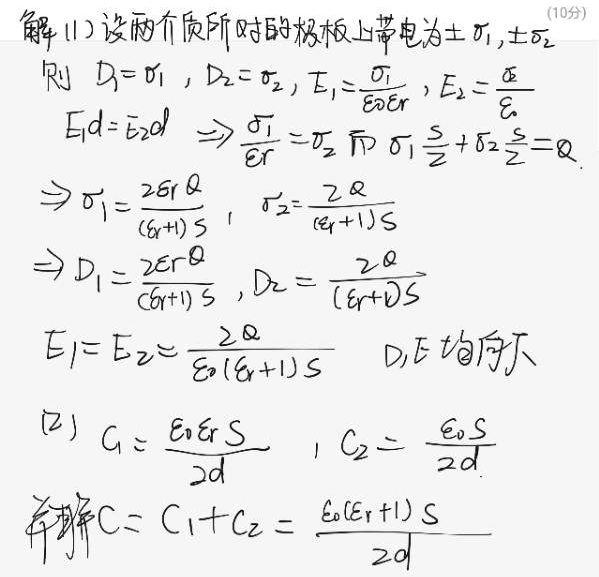 (10分)
解(1)设两介质所对的极板上带电为±σ₁,±σ₂
则 D₁=σ₁ , D₂=σ₂, E₁=σ₁/ε₀εr , E₂=σ₂/ε₀
E₁d=E₂d ⇒ σ₁/εr=σ₂ 而 σ₁ S/2+σ₂ S/2=Q.
⇒ σ₁=2εrQ/(εr+1)S , σ₂=2Q/(εr+1)S
⇒ D₁=2εrQ/(εr+1)S , D₂=2Q/(εr+1)S
E₁=E₂=2Q/ε₀(εr+1)S D,E均向下
(2) C₁=ε₀εrS/2d , C₂=ε₀S/2d.
并联 C=C₁+C₂=ε₀(εr+1)S/2d